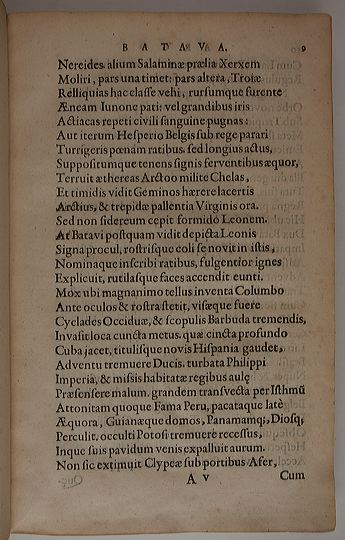 BATAVA. 9
Nereides. alium Salaminæ prælia Xerxem
Moliri, pars una timet: pars altera, Troiæ
Relliquias hac classe vehi, rursumque furente
Æneam Iunone pati: vel grandibus iris
Actiacas repeti civili sanguine pugnas:
Aut iterum Hesperio Belgis sub rege parari
Turrigeris pœnam ratibus. sed longius actus,
Suppositumque tenens signis ferventibus æquor,
Terruit æthereas Arctoo milite Chelas,
Et timidis vidit Geminos hærere lacertis
Arctius, & trepidæ pallentia Virginis ora.
Sed non sidereum cepit formido Leonem.
At Batavi postquam vidit depicta Leonis
Signa procul, rostrisque coli se novit in istis,
Nominaque inscribi ratibus, fulgentior ignes
Explicuit, rutilasque faces accendit eunti.
Mox ubi magnanimo tellus inventa Columbo
Ante oculos & rostra stetit, visæque fuere
Cyclades Occiduæ, & scopulis Barbuda tremendis,
Invasit loca cuncta metus. quæ cincta profundo
Cuba jacet, titulisque novis Hispania gaudet,
Adventu tremuere Ducis. turbata Philippi
Imperia, & missis habitatæ regibus aulę
Præsensere malum. grandem transvecta per Isthmū
Attonitam quoque Fama Peru, pacataque latè
Æquora, Guianæque domos, Panamamq;, Diosq,
Perculit. occulti Potosi tremuere recessus,
Inque suis pavidum venis expalluit aurum.
Non sic extimuit Clypeæ sub portibus Afer,
A v Cum